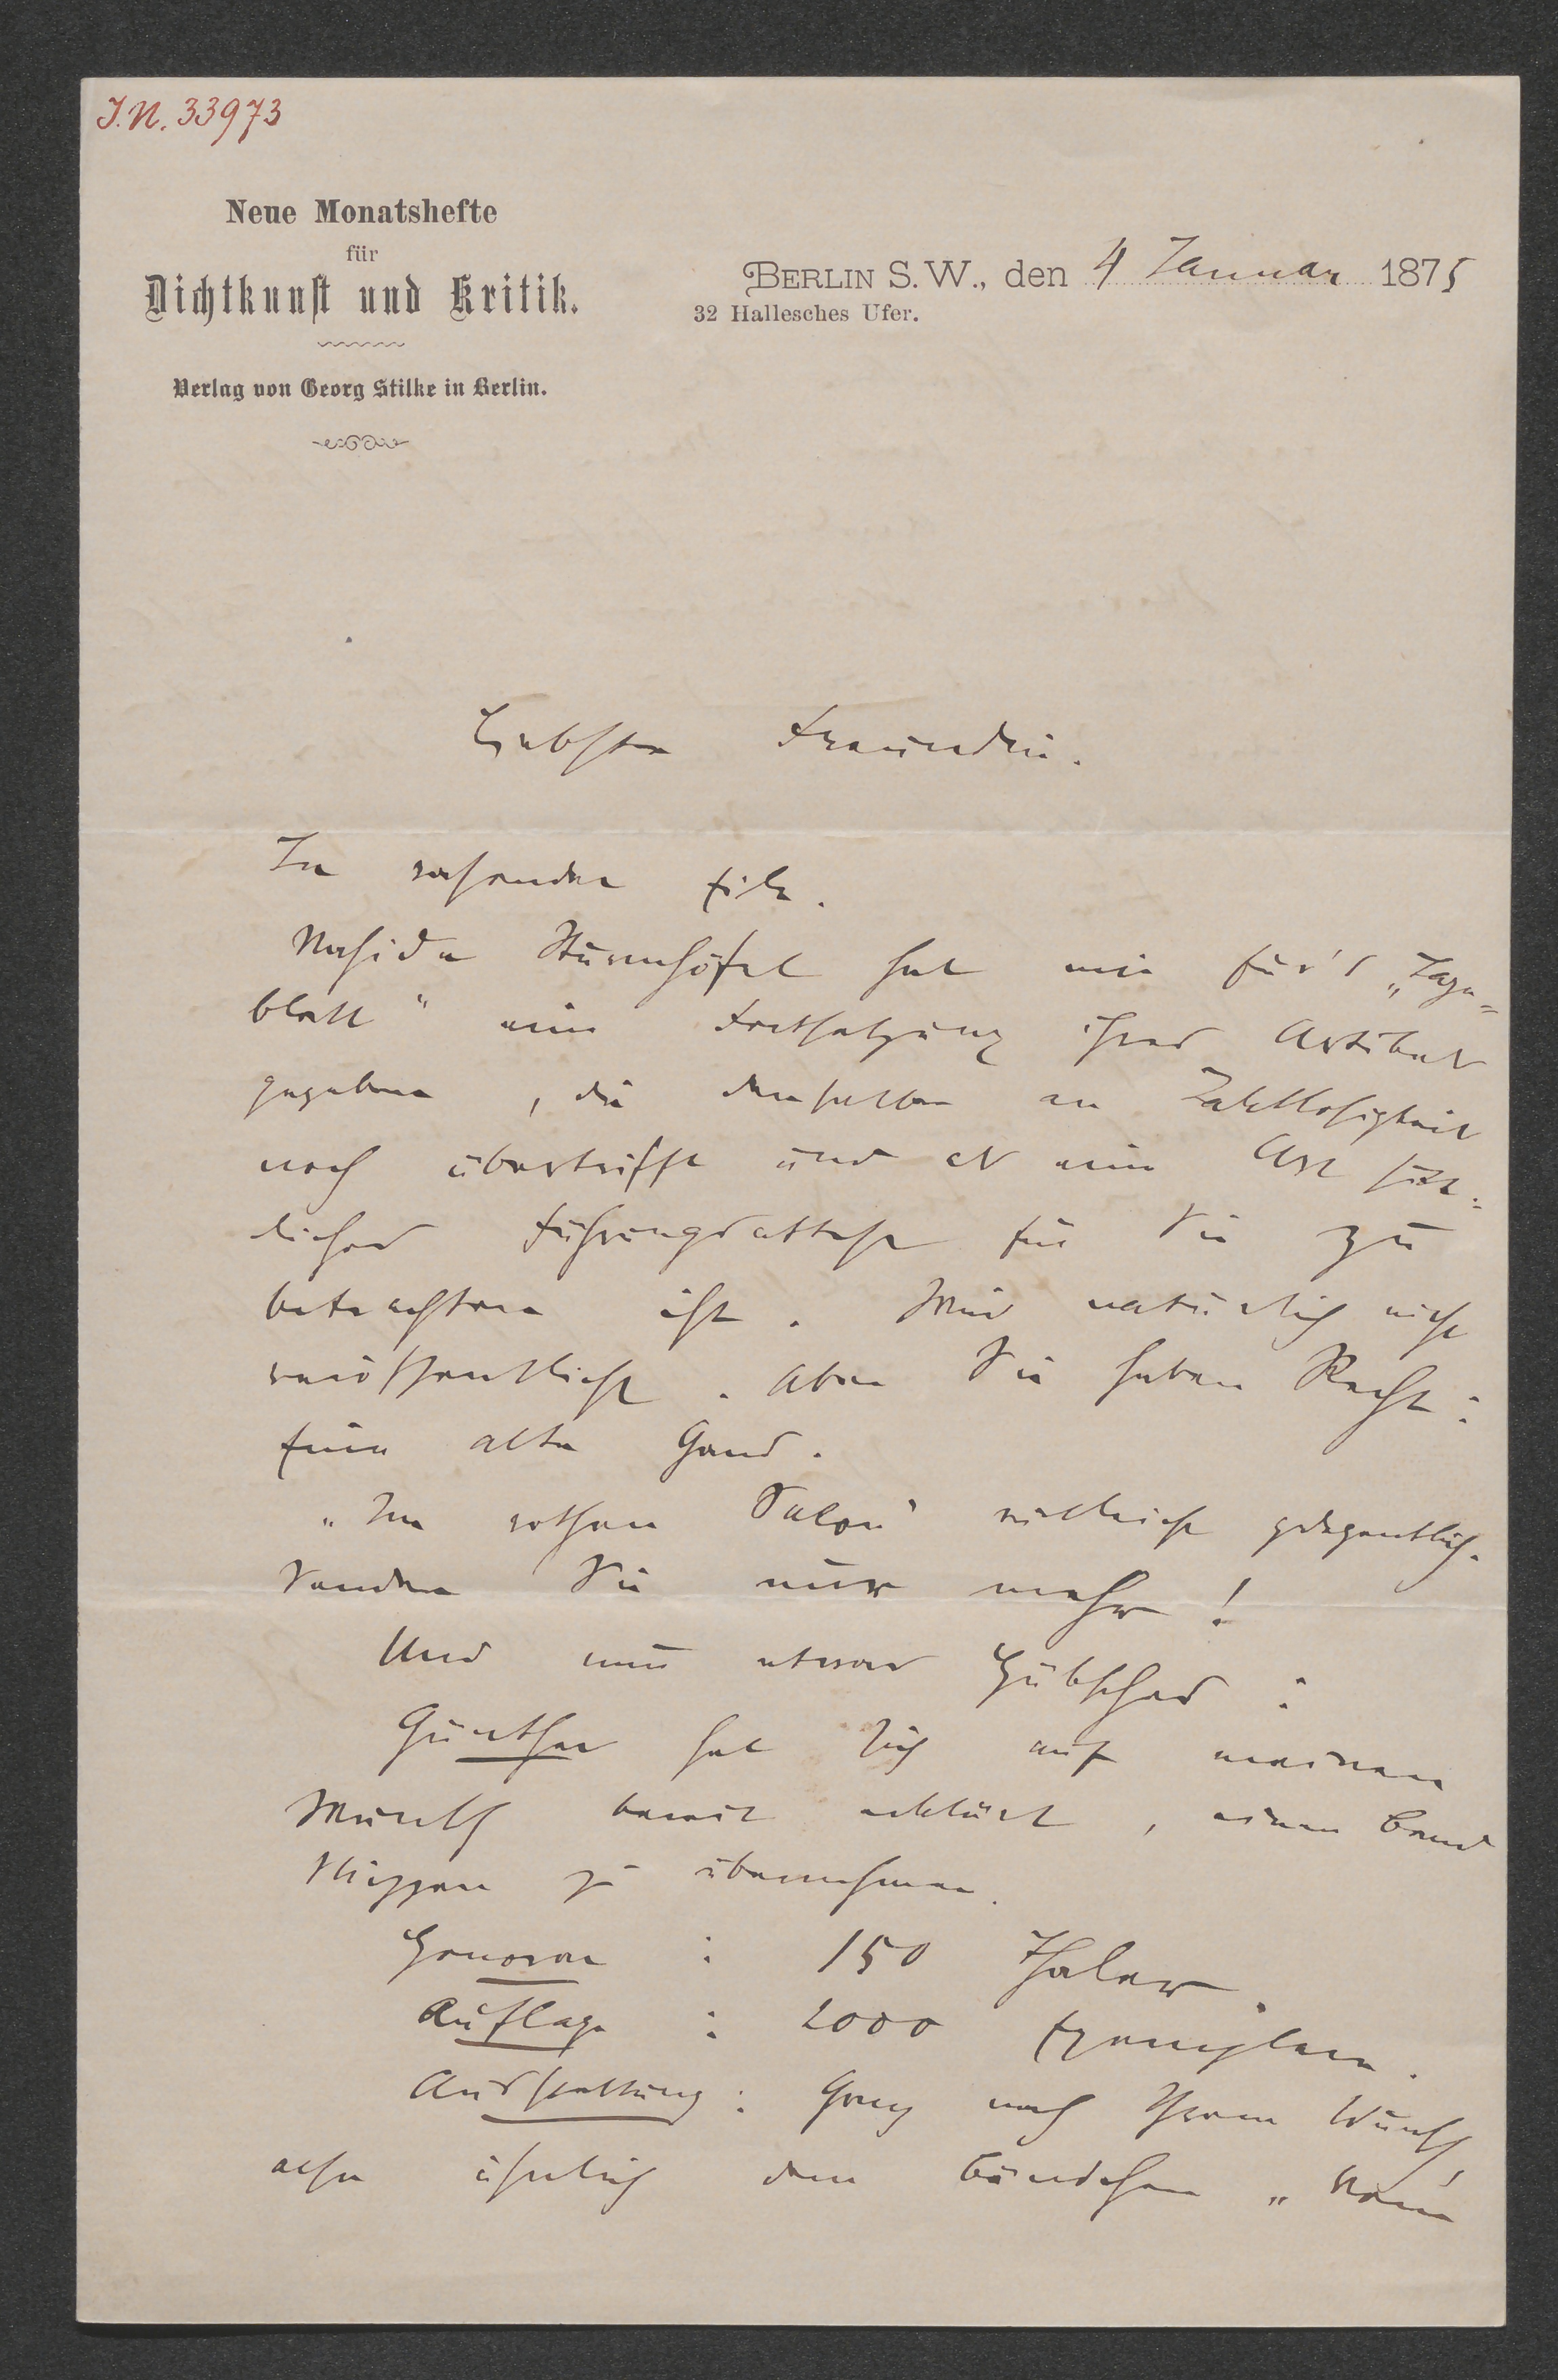 I.N. 33973
Neue Monatshefte
für
Dichtkunst und Kritik.
Verlag von Georg Stilke in Berlin.
BERLIN S. W., den 4 Januar 1875
32 Hallesches Ufer.
Liebste Freundin.
In rasender Eile.
Nahida Sturmhöfel hat mir für's „Tage=
blatt" eine Fortsetzung ihres Artikels
gegeben, die denselben an Taktlosigkeit
noch übertrifft und als eine Art sitt-
liches Führungsattest für Sie zu
betrachten ist. Wird natürlich nicht
veröffentlicht. Aber Sie haben Recht:
eine alte Gans.
„Im rothen Salon" vielleicht gelegentlich.
Senden Sie nur mehr!
Und nun etwas Hübsches:
Günther hat sich auf meinen
Wunsch bereit erklärt, einen Band
Skizzen zu übernehmen.
Honorar: 150 Thaler.
Auflage: 2000 Exemplare.
Ausstattung: Ganz nach Ihrem Wunsch,
also ähnlich dem Bändchen „Vom